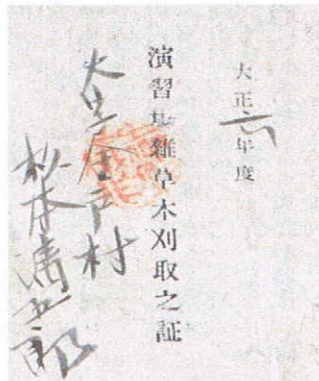 大正六年度
演習場雑草木刈取之証
大字室戸村
松本清五郎